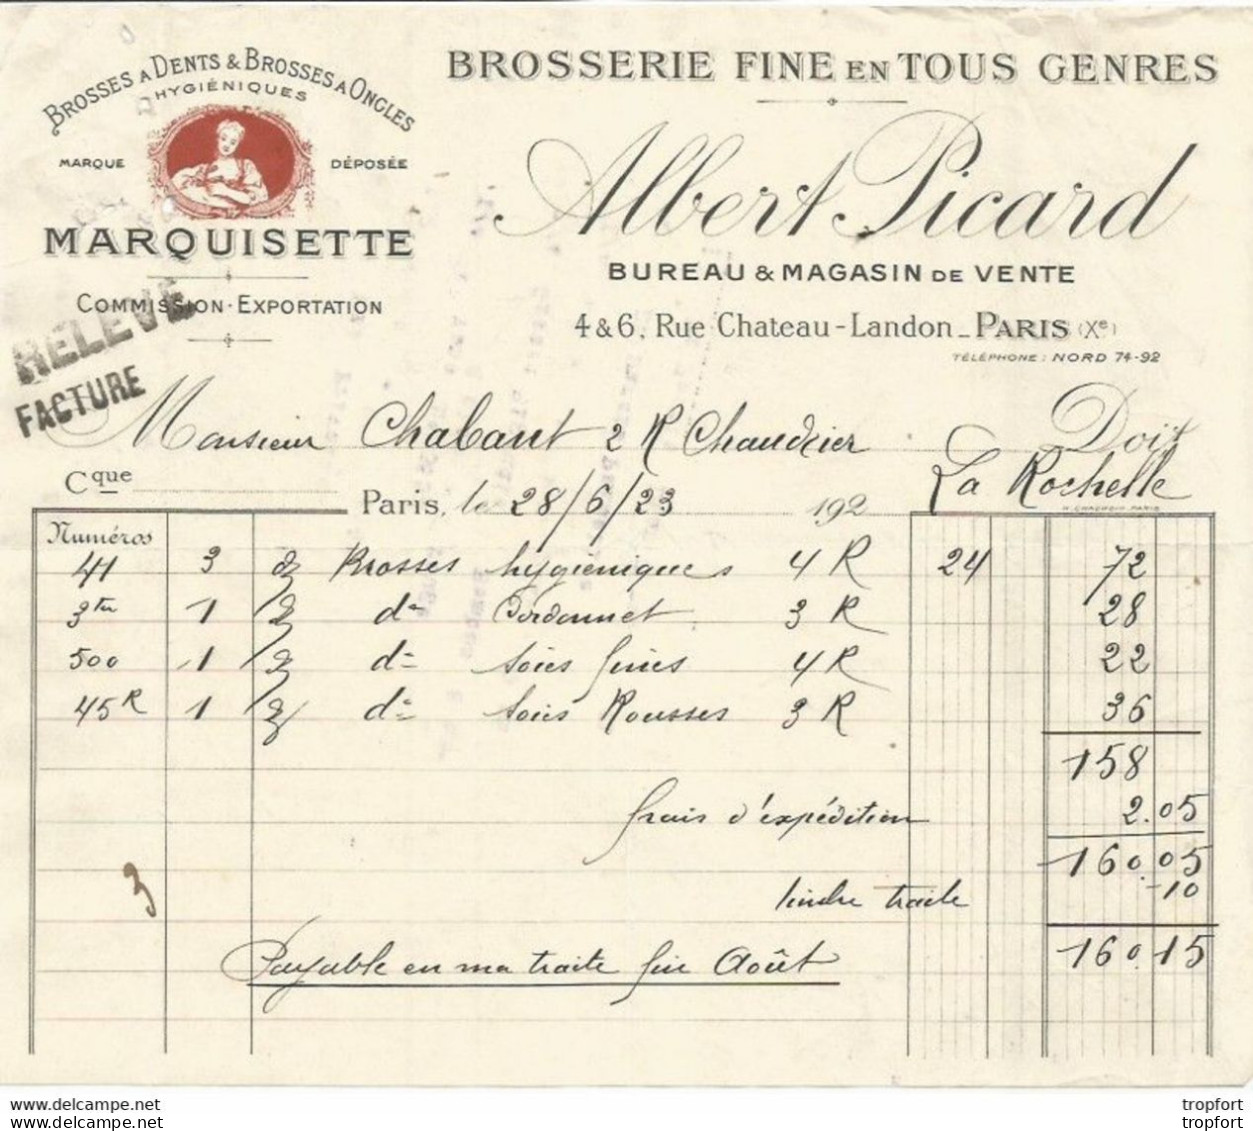 BROSSES A DENTS & BROSSES A ONGLES
HYGIÉNIQUES
MARQUE DÉPOSÉE
MARQUISETTE
COMMISSION - EXPORTATION
RELEVÉ
FACTURE
BROSSERIE FINE EN TOUS GENRES
Albert Picard
BUREAU & MAGASIN DE VENTE
4 & 6, Rue Chateau-Landon _ PARIS (Xe)
TÉLÉPHONE : NORD 74-92
Monsieur Chabant 2 R Chaudrier Doit
La Rochelle
Cque
Paris, le 28/6/23 192
Numéros
41 3 Brosses hygieniques 4 R 24 72
3ter 1 do Cordonnet 3 R 28
500 1 do soies fines 4 R 22
45 R 1 do soies Rousses 3 R 36
158
frais d'expédition 2.05
160.05
timbre traite -10
160.15
3
Payable en ma traite fin Août
tropfort
tropfort